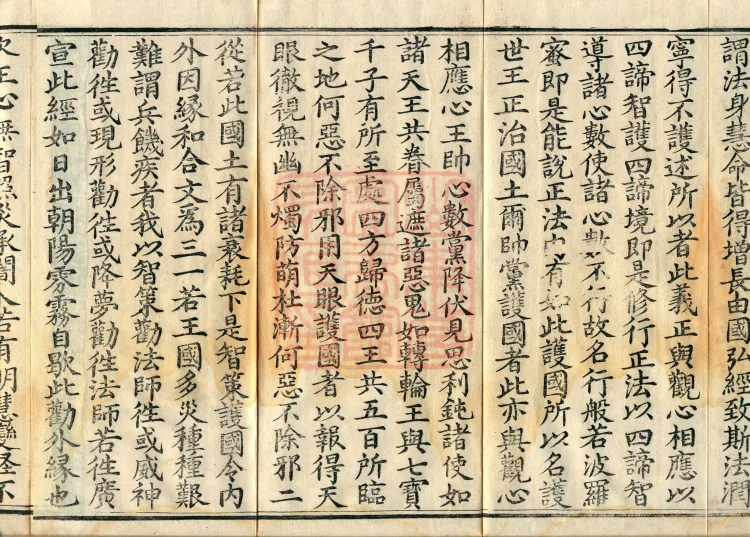 謂法身慧命皆得增長由國弘經致斯法潤
寧得不護述所以者此義正與觀心相應以
四諦智護四諦境即是修行正法以四諦智
導諸心數使諸心數不行故名行般若波羅
蜜即是能說正法也有如此護國所以名護
世王正治國土爾帥黨護國者此亦與觀心
相應心王帥心數黨降伏見思利鈍諸使如
諸天王共眷屬遮諸惡鬼如轉輪王與七寶
千子有所至處四方歸德四王共五百所臨
之地何惡不除邪用天眼護國者以報得天
眼徹視無幽不燭防萌杜漸何惡不除邪二
從若此國土有諸衰耗下是智策護國令內
外因緣和合文為三一若王國多災種種艱
難謂兵饑疾者我以智策勸法師徃或威神
勸徃或現形勸徃或降夢勸徃法師若徃廣
宣此經如日出朝陽雰霧自歇此勸外緣也
次王心無智照災承闇入若有明慧變怪不